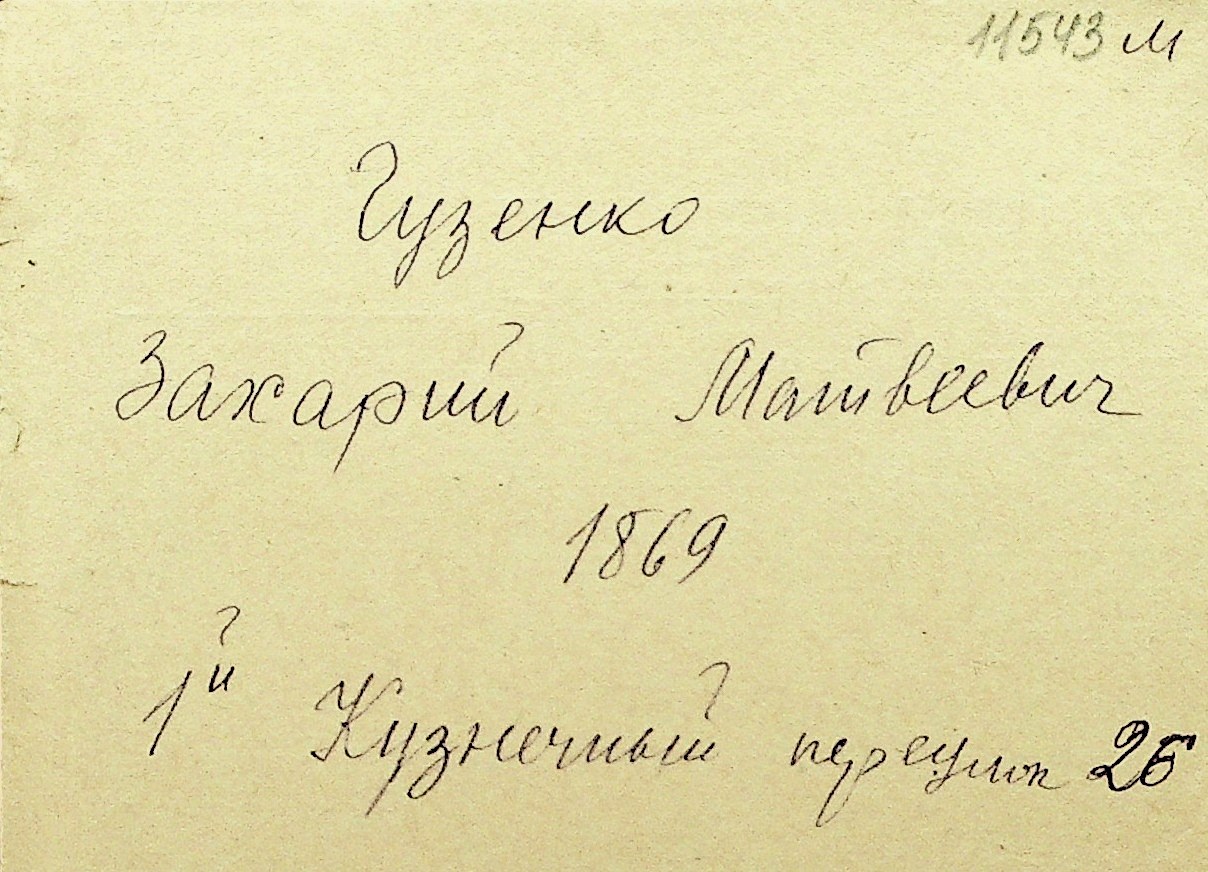 11543 м
Гузенко
Захарий Матвеевич
1869
1й Кузнечный переулок 26